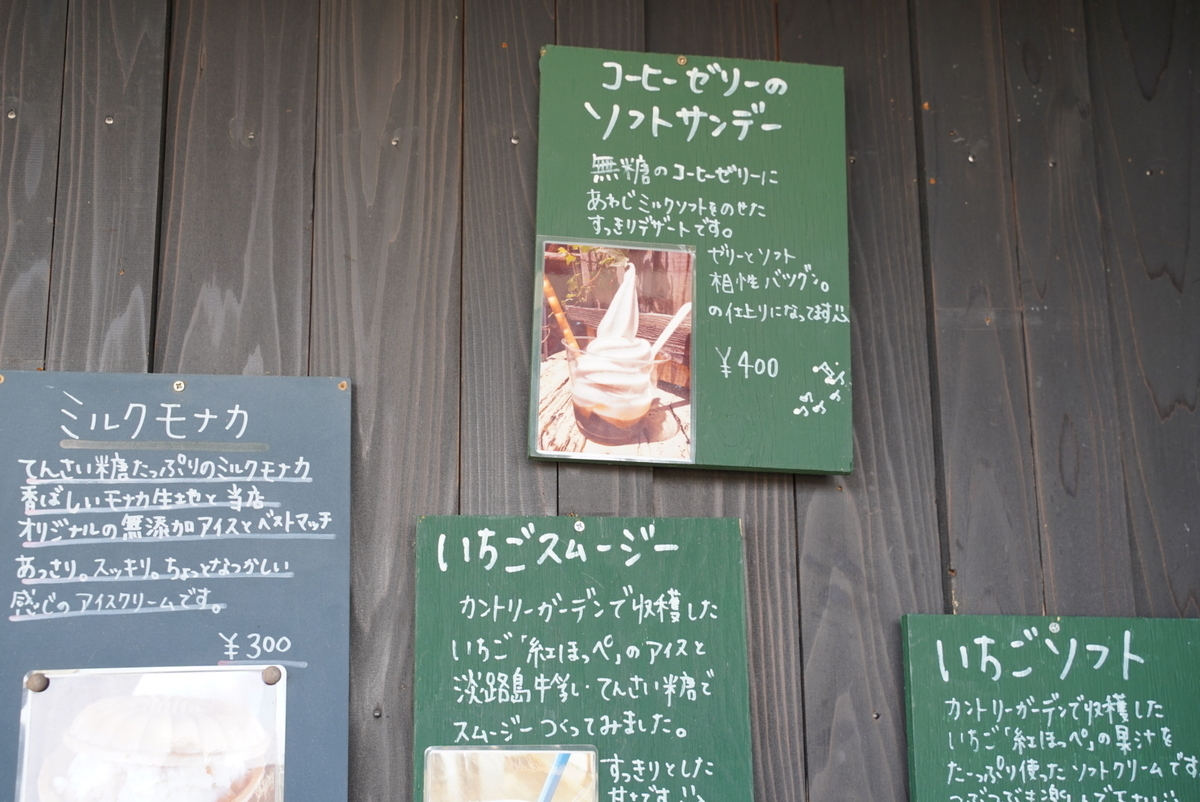 コーヒーゼリーの
ソフトサンデー
無糖のコーヒーゼリーに
あわじミルクソフトをのせた
すっきりデザートです。
ゼリーとソフト
相性バツグン。
の仕上りになってます
¥400
ミルクモナカ
てんさい糖たっぷりのミルクモナカ
香ばしいモナカ生地と当店
オリジナルの無添加アイスとベストマッチ
あっさり。スッキリ。ちょっとなつかしい
感じのアイスクリームです。
¥300
いちごスムージー
カントリーガーデンで収穫した
いちご「紅ほっぺ」のアイスと
淡路島牛乳・てんさい糖で
スムージーつくってみました。
すっきりとした
甘さです
いちごソフト
カントリーガーデンで収穫した
いちご「紅ほっぺ」の果汁を
たーっぷり使ったソフトクリームです